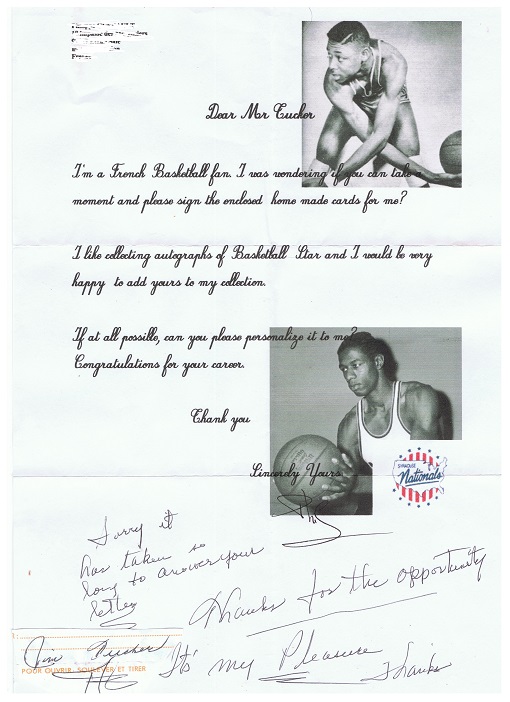 Dear Mr Tucker
I'm a French Basketball fan. I was wondering if you can take a
moment and please sign the enclosed home made cards for me?
I like collecting autographs of Basketball Star and I would be very
happy to add yours to my collection.
If at all possible, can you please personalize it to me?
Congratulations for your career.
Thank you
Sincerely Yours
SYRACUSE
Nationals
Sorry it
has taken so
long to answer your
letter
Thanks for the opportunity
Jim Tucker
POUR OUVRIR, SOULEVER ET TIRER
It's my Pleasure
Thanks